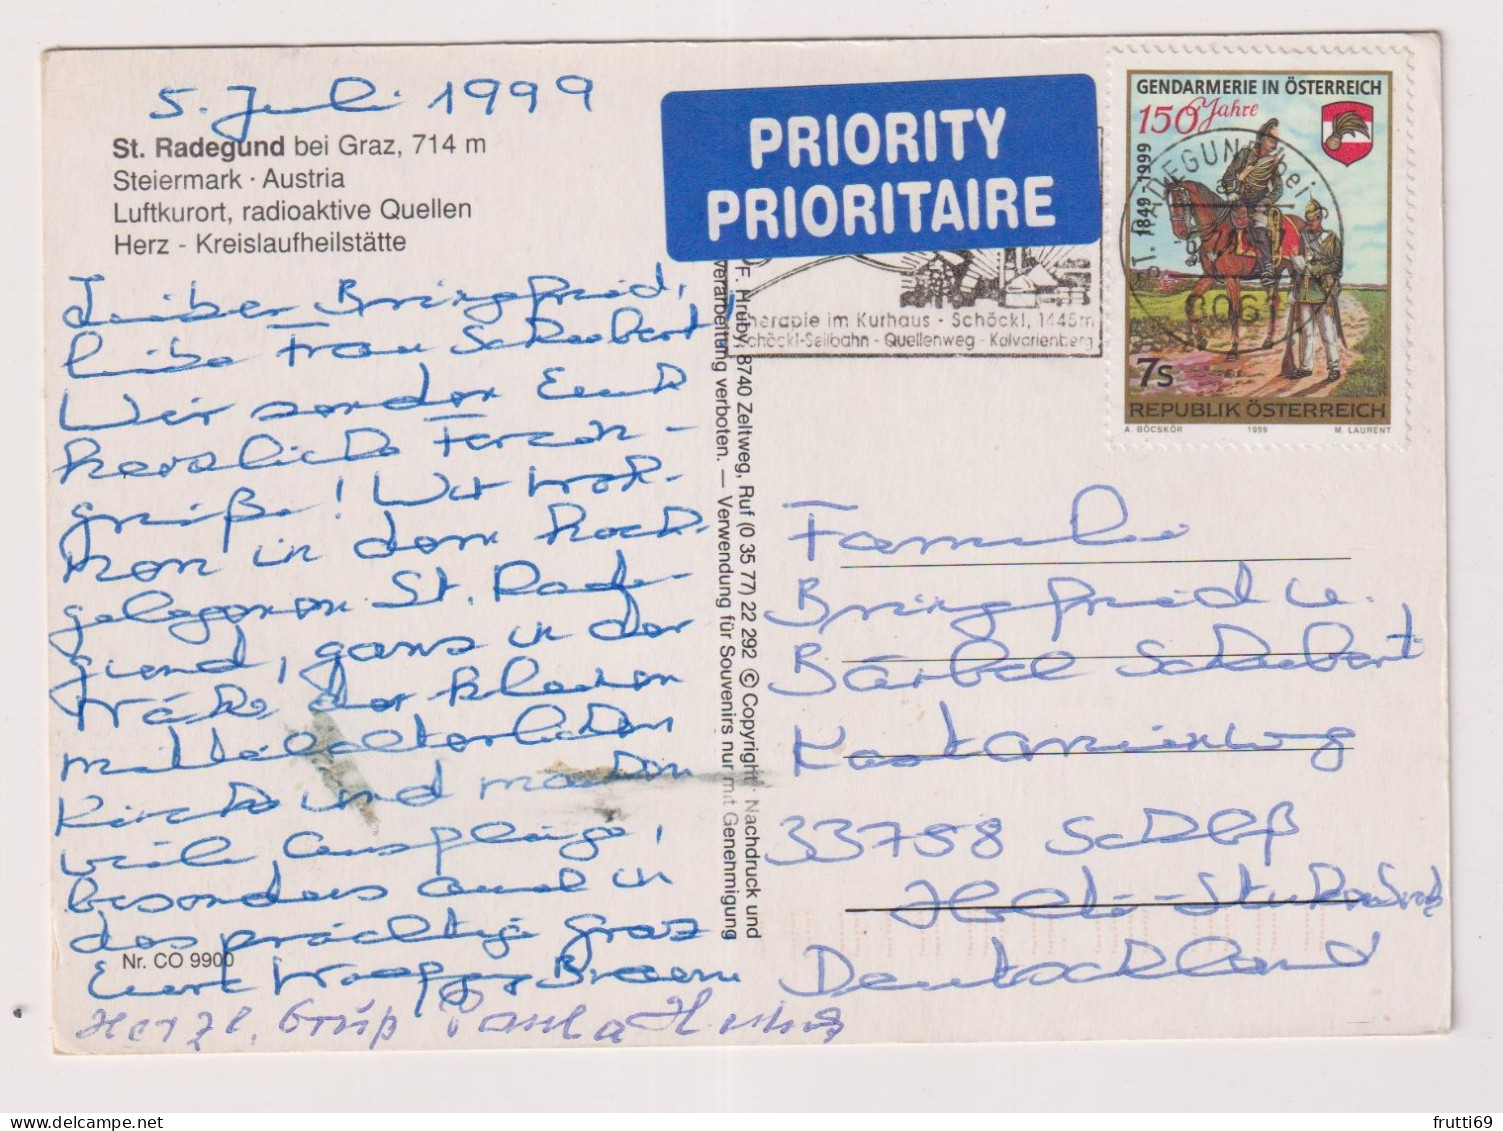 5. Juli 1999
St. Radegund bei Graz, 714 m
Steiermark · Austria
Luftkurort, radioaktive Quellen
Herz - Kreislaufheilstätte
Lieber Bringfried,
liebe Frau Schubert!
Wir senden Euch
herzliche Ferien-
grüße! Wir woh-
nen in dem hoch-
gelegenen St. Rade-
gund, ganz in der
Nähe der kleinen
mittelalterlichen
Kirche und machen
viele Ausflüge,
besonders auch in
das prächtige Graz
Eure Braun
Herzl. Gruß Paula
Nr. CO 9900
F. Hruby, 8740 Zeltweg, Ruf (0 35 77) 22 292 © Copyright · Nachdruck und
verarbeitung verboten. — Verwendung für Souvenirs nur mit Genehmigung
PRIORITY
PRIORITAIRE
therapie im Kurhaus - Schöckl, 1445m
Schöckl-Seilbahn - Quellenweg - Kalvarienberg
GENDARMERIE IN ÖSTERREICH
150 Jahre
1849-1999
ST. RADEGUND bei
8061
7s
REPUBLIK ÖSTERREICH
A. BÖCSKÖR 1999 M. LAURENT
Familie
Bringfried u.
Bärbel Schubert
Kastanienweg
33758 Schloß
Holte-Stukenbrock
Deutschland
frutti69